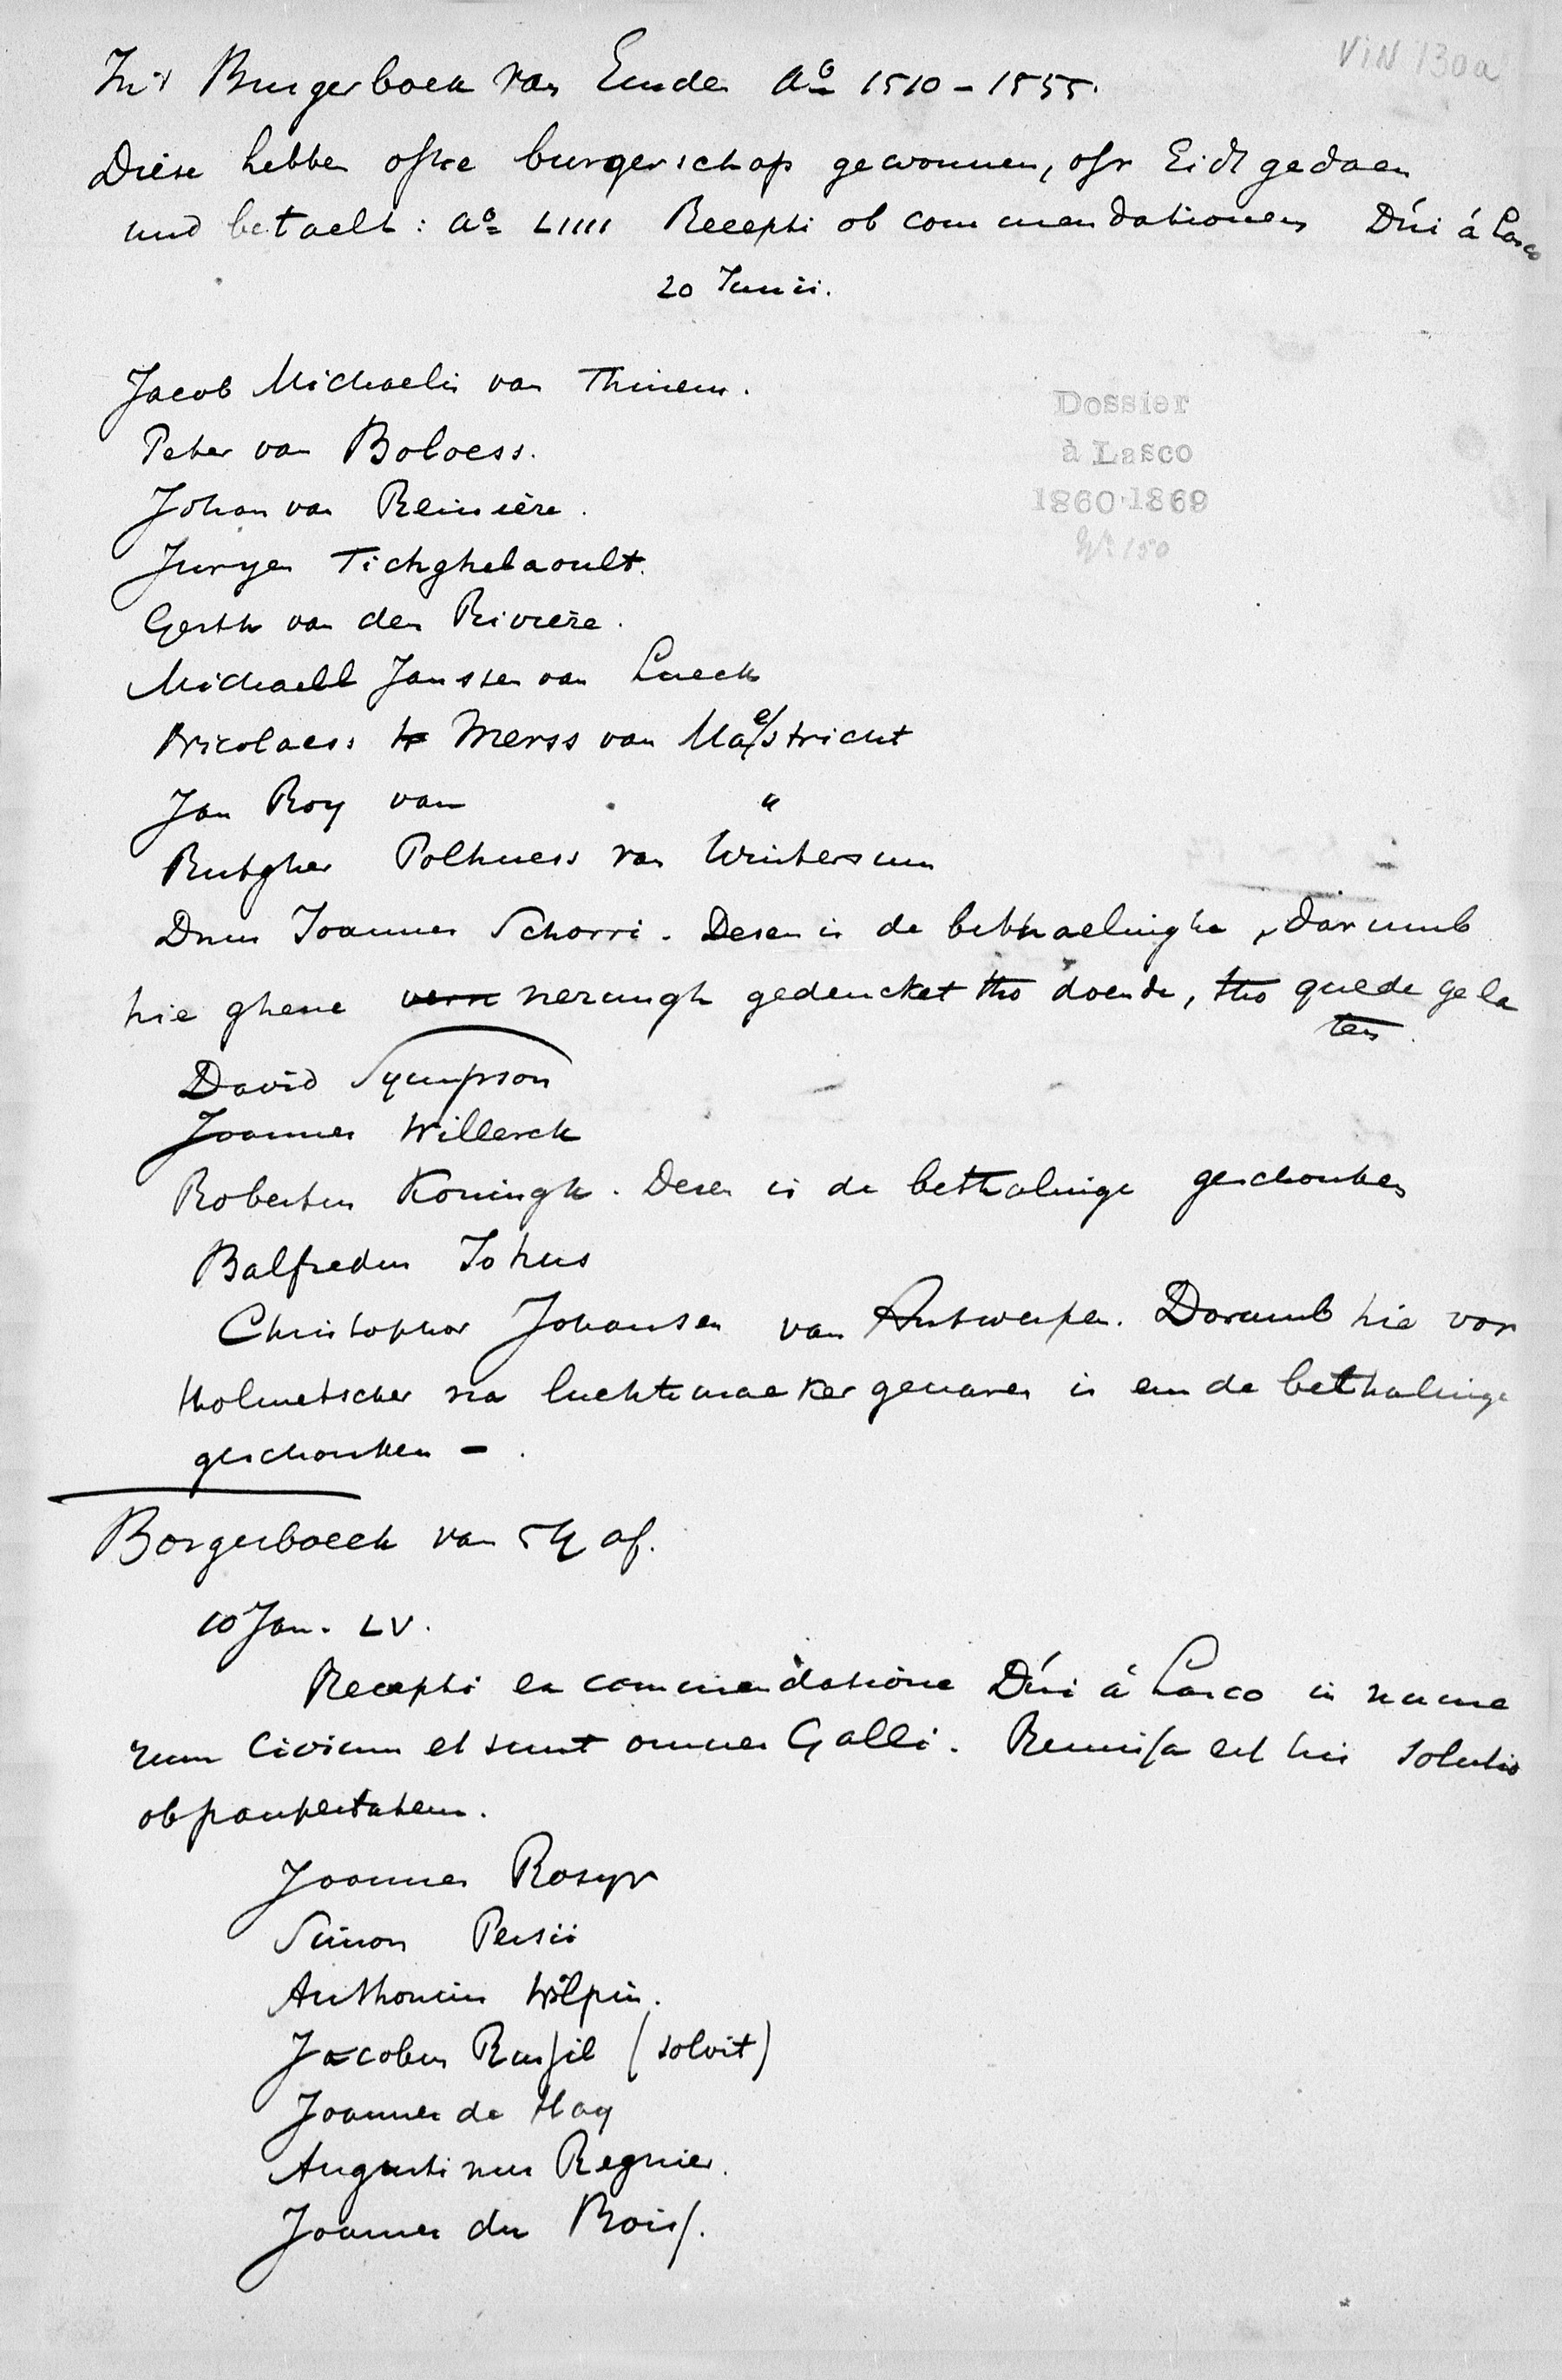 VIN 130a
In't Burgerboek van Emden Ao 1510-1555.
Diese hebben ohre burgerschop gewonnen, ohr Eidt gedaen
und betaelt: Ao LIIII Recepti ob commendationem Dni á Lasco
20 Junii.
Jacob Michaelis van Thinem.
Peter van Boloess.
Johan van Reiniere.
Jurgen Tichghelaoult.
Gerth van der Riviere.
Michaell Janssen van Lueck
Nicolaess Merss van Maestricht
Jan Roy van "
Rutgher Polhuess van Wintersum
Dnus Joannes Schorri. Desen is de bethaelinghe, darumb
hie ghene nerungh gedencket tho doende, tho guede gela
ten.
David Sympson
Joannes Willerck
Robertus Koningk. Desen is de bethalinge geschonken
Balfredus Johns
Christophor Johansen van Antwerpen. Dorumb hie vor
tholmetscher na luchtemaeker genamen is em de bethalinge
geschonken - .
Borgerboeck van 54 af.
10 Jan. LV.
Recepti ex commendatione Dni á Lasco in nume
rum civium et sunt omnes Galli. Remissa est his solutio
ob paupertatem.
Joannes Rosyr
Simon Persii
Anthonius Wilpin.
Jacobus Russil (solvit)
Joannes de Hay
Augustinus Regnier.
Joannes du Bois.
Dossier
à Lasco
1860-1869
No 150